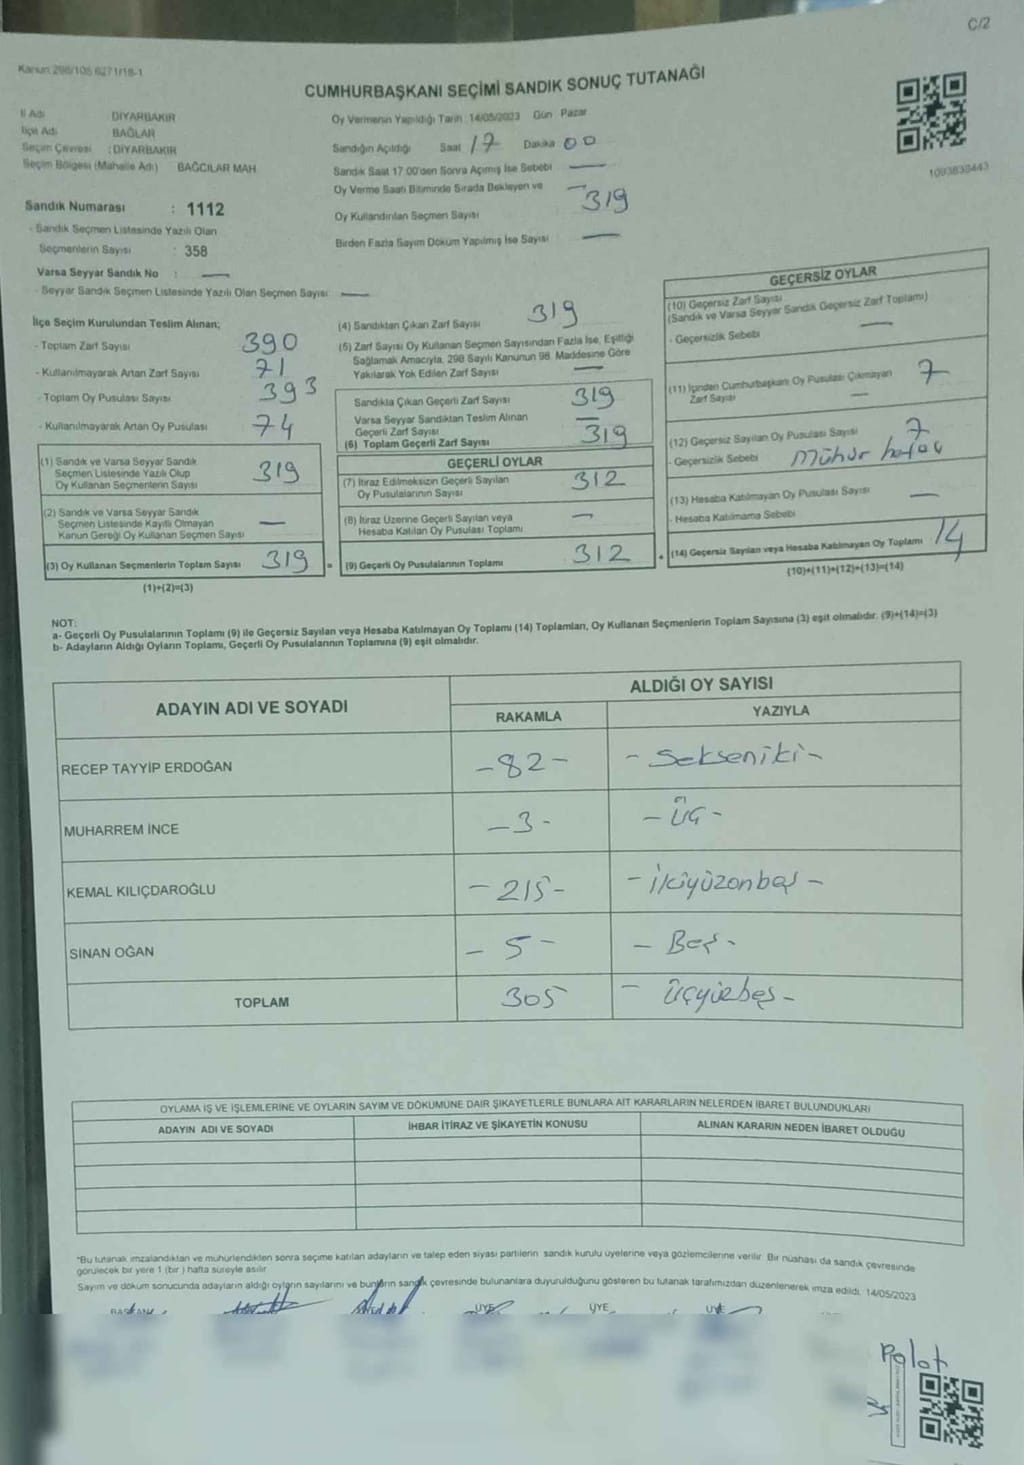 C/2
Kanun 298/105 6271/18-1
CUMHURBAŞKANI SEÇİMİ SANDIK SONUÇ TUTANAĞI
İl Adı DİYARBAKIR
İlçe Adı BAĞLAR
Seçim Çevresi : DİYARBAKIR
Seçim Bölgesi (Mahalle Adı) BAĞCILAR MAH.
Sandık Numarası : 1112
- Sandık Seçmen Listesinde Yazılı Olan
Seçmenlerin Sayısı : 358
Varsa Seyyar Sandık No : —
- Seyyar Sandık Seçmen Listesinde Yazılı Olan Seçmen Sayısı —
Oy Vermenin Yapıldığı Tarih: 14/05/2023 Gün Pazar
Sandığın Açıldığı Saat 17 Dakika 00
Sandık Saat 17:00'den Sonra Açılmış İse Sebebi —
Oy Verme Saati Bitiminde Sırada Bekleyen ve —
Oy Kullandırılan Seçmen Sayısı 319
Birden Fazla Sayım Döküm Yapılmış İse Sayısı —
1093838443
İlçe Seçim Kurulundan Teslim Alınan;
- Toplam Zarf Sayısı 390
- Kullanılmayarak Artan Zarf Sayısı 71
- Toplam Oy Pusulası Sayısı 393
- Kullanılmayarak Artan Oy Pusulası 74
(1) Sandık ve Varsa Seyyar Sandık
Seçmen Listesinde Yazılı Olup
Oy Kullanan Seçmenlerin Sayısı 319
(2) Sandık ve Varsa Seyyar Sandık
Seçmen Listesinde Kayıtlı Olmayan
Kanun Gereği Oy Kullanan Seçmen Sayısı —
(3) Oy Kullanan Seçmenlerin Toplam Sayısı 319 =
(1)+(2)=(3)
(4) Sandıktan Çıkan Zarf Sayısı 319
(5) Zarf Sayısı Oy Kullanan Seçmen Sayısından Fazla İse, Eşitliği
Sağlamak Amacıyla, 298 Sayılı Kanunun 98. Maddesine Göre
Yakılarak Yok Edilen Zarf Sayısı —
Sandıkta Çıkan Geçerli Zarf Sayısı 319
Varsa Seyyar Sandıktan Teslim Alınan
Geçerli Zarf Sayısı —
(6) Toplam Geçerli Zarf Sayısı 319
GEÇERLİ OYLAR
(7) İtiraz Edilmeksizin Geçerli Sayılan
Oy Pusulalarının Sayısı 312
(8) İtiraz Üzerine Geçerli Sayılan veya
Hesaba Katılan Oy Pusulası Toplamı —
(9) Geçerli Oy Pusulalarının Toplamı 312 +
GEÇERSİZ OYLAR
(10) Geçersiz Zarf Sayısı
(Sandık ve Varsa Seyyar Sandık Geçersiz Zarf Toplamı) —
- Geçersizlik Sebebi
(11) İçinden Cumhurbaşkanı Oy Pusulası Çıkmayan
Zarf Sayısı — 7
(12) Geçersiz Sayılan Oy Pusulası Sayısı 7
- Geçersizlik Sebebi Mühür
(13) Hesaba Katılmayan Oy Pusulası Sayısı —
- Hesaba Katılmama Sebebi
(14) Geçersiz Sayılan veya Hesaba Katılmayan Oy Toplamı 14
(10)+(11)+(12)+(13)=(14)
NOT:
a- Geçerli Oy Pusulalarının Toplamı (9) ile Geçersiz Sayılan veya Hesaba Katılmayan Oy Toplamı (14) Toplamları, Oy Kullanan Seçmenlerin Toplam Sayısına (3) eşit olmalıdır. (9)+(14)=(3)
b- Adayların Aldığı Oyların Toplamı, Geçerli Oy Pusulalarının Toplamına (9) eşit olmalıdır.
ADAYIN ADI VE SOYADI
ALDIĞI OY SAYISI
RAKAMLA YAZIYLA
RECEP TAYYİP ERDOĞAN -82- - Sekseniki -
MUHARREM İNCE -3- - Üç -
KEMAL KILIÇDAROĞLU -215- - İkiyüzonbeş -
SİNAN OĞAN - 5 - - Beş -
TOPLAM 305 - Üçyüzbeş -
OYLAMA İŞ VE İŞLEMLERİNE VE OYLARIN SAYIM VE DÖKÜMÜNE DAİR ŞİKAYETLERLE BUNLARA AİT KARARLARIN NELERDEN İBARET BULUNDUKLARI
ADAYIN ADI VE SOYADI İHBAR İTİRAZ VE ŞİKAYETİN KONUSU ALINAN KARARIN NEDEN İBARET OLDUĞU
*Bu tutanak imzalandıktan ve mühürlendikten sonra seçime katılan adayların ve talep eden siyasi partilerin sandık kurulu üyelerine veya gözlemcilerine verilir. Bir nüshası da sandık çevresinde
görülecek bir yere 1 (bir) hafta süreyle asılır.
Sayım ve döküm sonucunda adayların aldığı oyların sayılarını ve bunların sandık çevresinde bulunanlara duyurulduğunu gösteren bu tutanak tarafımızdan düzenlenerek imza edildi. 14/05/2023
BAŞKAN ÜYE ÜYE ÜYE
Polat